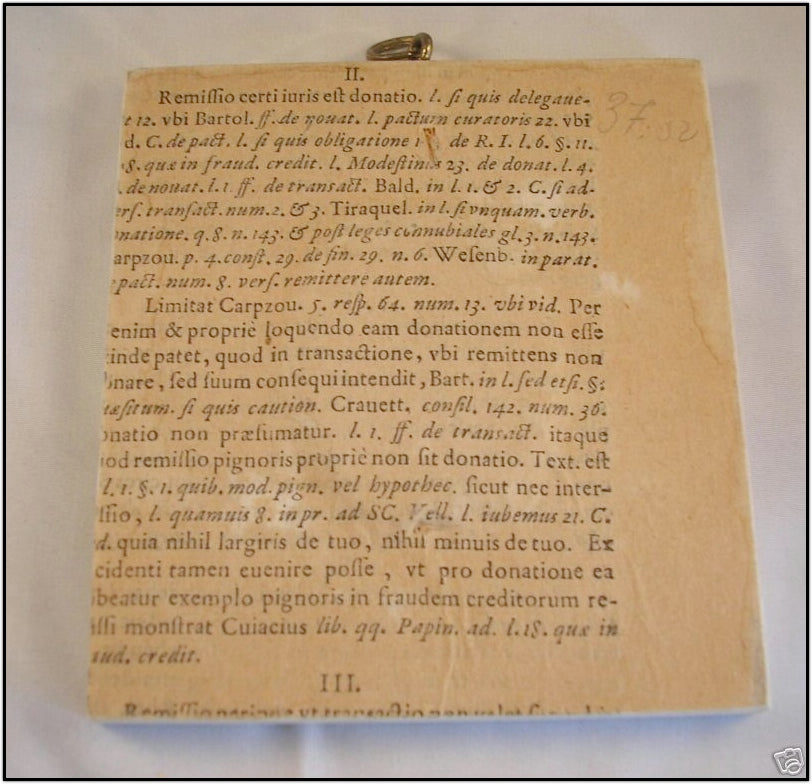 II.
Remiſſio certi iuris eſt donatio. l. ſi quis delegaue-
t 12. vbi Bartol. ff. de nouat. l. pactum curatoris 22. vbi
d. C. de pact. l. ſi quis obligatione de R. I. l. 6. §. 11.
8. quæ in fraud. credit. l. Modeſtinus 23. de donat. l. 4.
. de nouat. l. 1. ff. de transact. Bald. in l. 1. & 2. C. ſi ad-
erſ. tranſact. num. 2. & 3. Tiraquel. in l. ſi vnquam. verb.
natione. q. 8. n. 143. & poſt leges connubiales gl. 3. n. 143.
arpzou. p. 4. conſt. 29. de fin. 29. n. 6. Weſenb. in parat.
pact. num. 8. verſ. remittere autem.
Limitat Carpzou. 5. reſp. 64. num. 13. vbi vid. Per
enim & propriè loquendo eam donationem non eſſe
inde patet, quod in transactione, vbi remittens non
onare, ſed ſuum conſequi intendit, Bart. in l. ſed etſi. §.
æſitum. ſi quis caution. Crauett. conſil. 142. num. 36.
onatio non præſumatur. l. 1. ff. de transact. itaque
od remiſſio pignoris propriè non ſit donatio. Text. eſt
l. 1. §. 1. quib. mod. pign. vel hypothec. ſicut nec inter-
ſſio, l. quamuis 8. in pr. ad SC. Vell. l. iubemus 21. C.
d. quia nihil largiris de tuo, nihil minuis de tuo. Ex
cidenti tamen euenire poſſe, vt pro donatione ea
beatur exemplo pignoris in fraudem creditorum re-
iſſi monſtrat Cuiacius lib. qq. Papin. ad. l. 18. quæ in
aud. credit.
III.